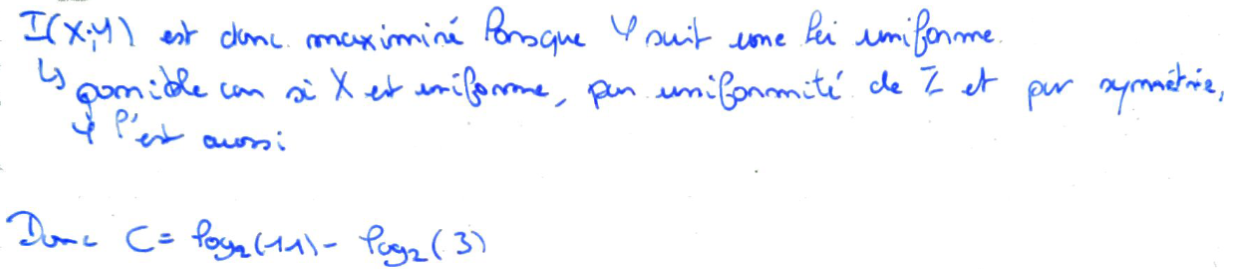 I(X;Y) est donc maximisé lorsque Y suit une loi uniforme.
↳ possible car si X est uniforme, par uniformité de Z et par symétrie,
Y l'est aussi
Donc C = log₂(11) - log₂(3)